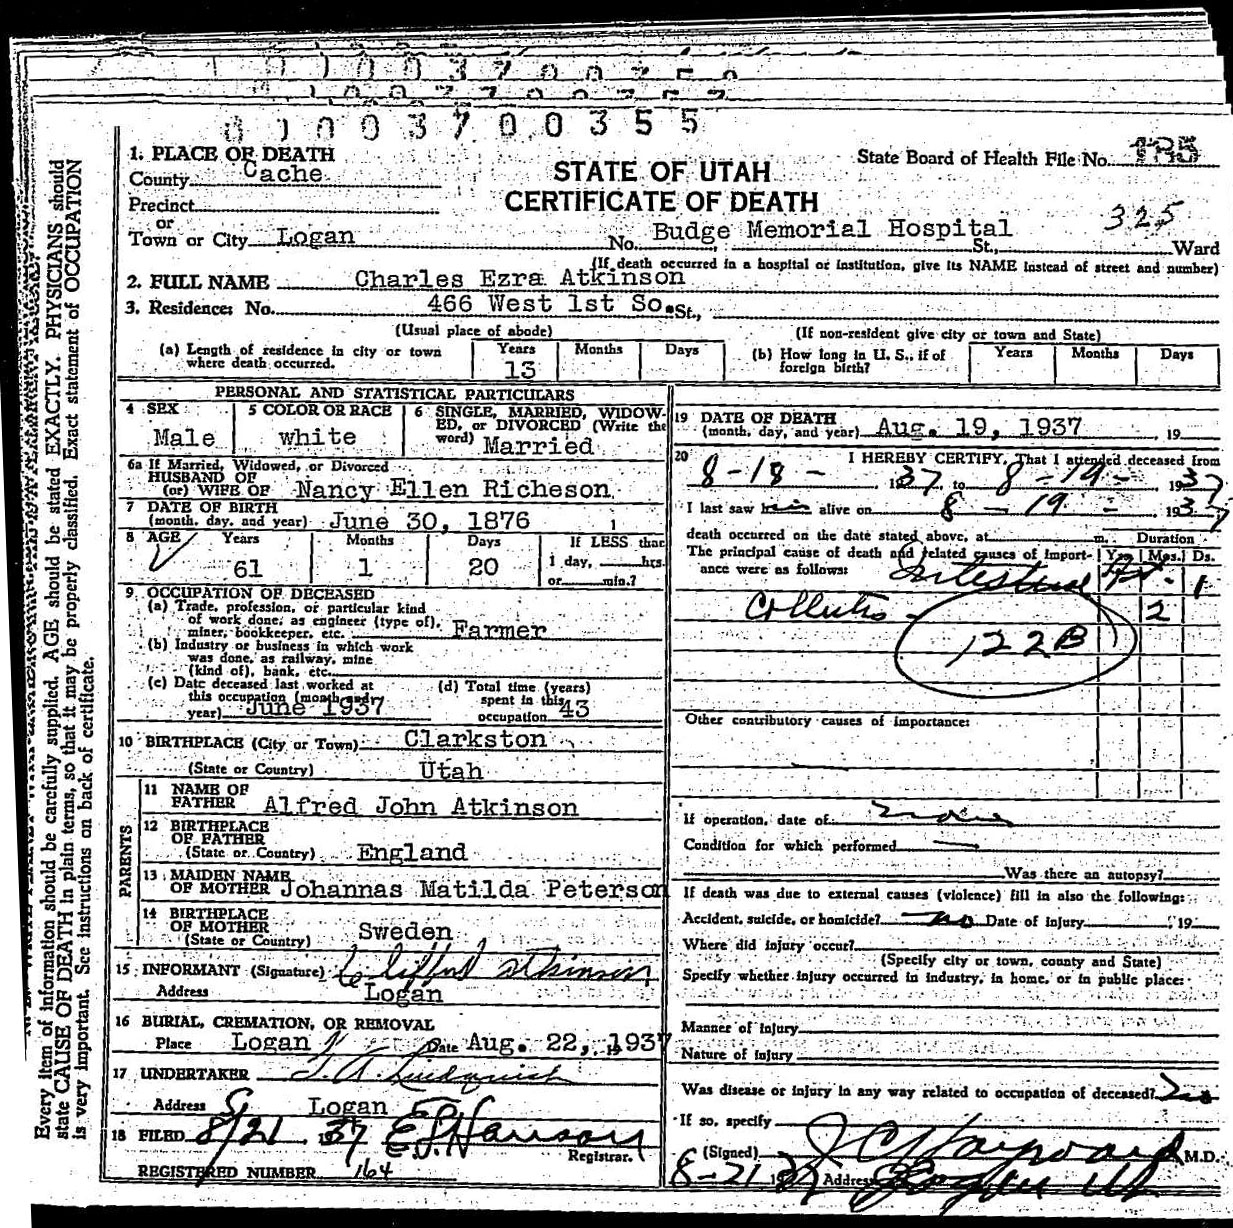 0 1 0 0 3 7 0 0 3 5 5
1. PLACE OF DEATH
County Cache
State Board of Health File No.
STATE OF UTAH
CERTIFICATE OF DEATH
Precinct
or
Town or City Logan No. Budge Memorial Hospital St., 325 Ward
(If death occurred in a hospital or institution, give its NAME instead of street and number)
2. FULL NAME Charles Ezra Atkinson
3. Residence: No. 466 West 1st So. St.,
(Usual place of abode) (If non-resident give city or town and State)
(a) Length of residence in city or town where death occurred. Years 13 Months Days
(b) How long in U. S., if of foreign birth? Years Months Days
PERSONAL AND STATISTICAL PARTICULARS
4 SEX Male
5 COLOR OR RACE white
6 SINGLE, MARRIED, WIDOWED, or DIVORCED (Write the word) Married
6a If Married, Widowed, or Divorced
HUSBAND OF
(or) WIFE OF Nancy Ellen Richeson
7 DATE OF BIRTH
(month, day, and year) June 30, 1876
8 AGE Years 61 Months 1 Days 20 If LESS than 1 day, hrs. or min.?
9 OCCUPATION OF DECEASED
(a) Trade, profession, or particular kind
of work done; as engineer (type of),
miner, bookkeeper, etc. Farmer
(b) Industry or business in which work
was done, as railway, mine
(kind of), bank, etc.
(c) Date deceased last worked at
this occupation (month and
year) June 1937
(d) Total time (years)
spent in this
occupation 43
10 BIRTHPLACE (City or Town) Clarkston
(State or Country) Utah
PARENTS
11 NAME OF
FATHER Alfred John Atkinson
12 BIRTHPLACE
OF FATHER
(State or Country) England
13 MAIDEN NAME
OF MOTHER Johannas Matilda Peterson
14 BIRTHPLACE
OF MOTHER
(State or Country) Sweden
15 INFORMANT (Signature) Clifford Atkinson
Address Logan
16 BURIAL, CREMATION, OR REMOVAL
Place Logan Date Aug. 22, 1937
17 UNDERTAKER
Address Logan
18 FILED 8/21 1937 Registrar.
REGISTERED NUMBER 164
19 DATE OF DEATH
(month, day, and year) Aug. 19, 1937, 19
20 I HEREBY CERTIFY, That I attended deceased from
8-18- 1937, to 8-19- 1937
I last saw him alive on 8-19- 1937
death occurred on the date stated above, at m. Duration
The principal cause of death and related causes of importance were as follows: Yrs. Mos. Ds.
Intestinal 1
2
122B
Other contributory causes of importance:
If operation, date of None
Condition for which performed
Was there an autopsy?
If death was due to external causes (violence) fill in also the following:
Accident, suicide, or homicide? no Date of injury , 19
Where did injury occur?
(Specify city or town, county and State)
Specify whether injury occurred in industry, in home, or in public place:
Manner of injury
Nature of injury
Was disease or injury in any way related to occupation of deceased? no
If so, specify
(Signed) J C Hayward M.D.
8-21 1937 Address Logan Ut
Every item of information should be carefully supplied. AGE should be stated EXACTLY. PHYSICIANS should
state CAUSE OF DEATH in plain terms, so that it may be properly classified. Exact statement of OCCUPATION
is very important. See instructions on back of certificate.